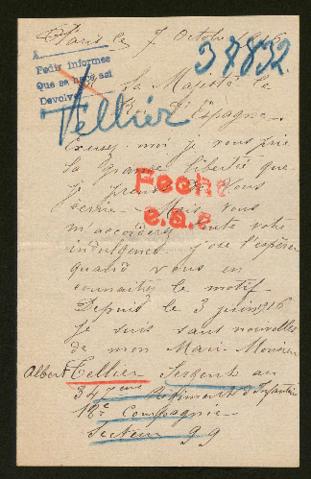 Paris le 7 Octobre
37832
A
Pedir informes
Que se hace así
Devolver
Tellier
Sa Majesté le
Roi d'Espagne
Excusez moi je vous prie
la grande liberté que
je prends de vous
écrire. Mais vous
m'accorderez toute votre
indulgence j'ose l'espérer
quand vous en
connaîtrez le motif.
Depuis le 3 juin 1916
je suis sans nouvelles
de mon Mari Monsieur
Albert Tellier Sergent au
347eme Régiment d'Infanterie
18e Compagnie
Secteur 99
Fecha